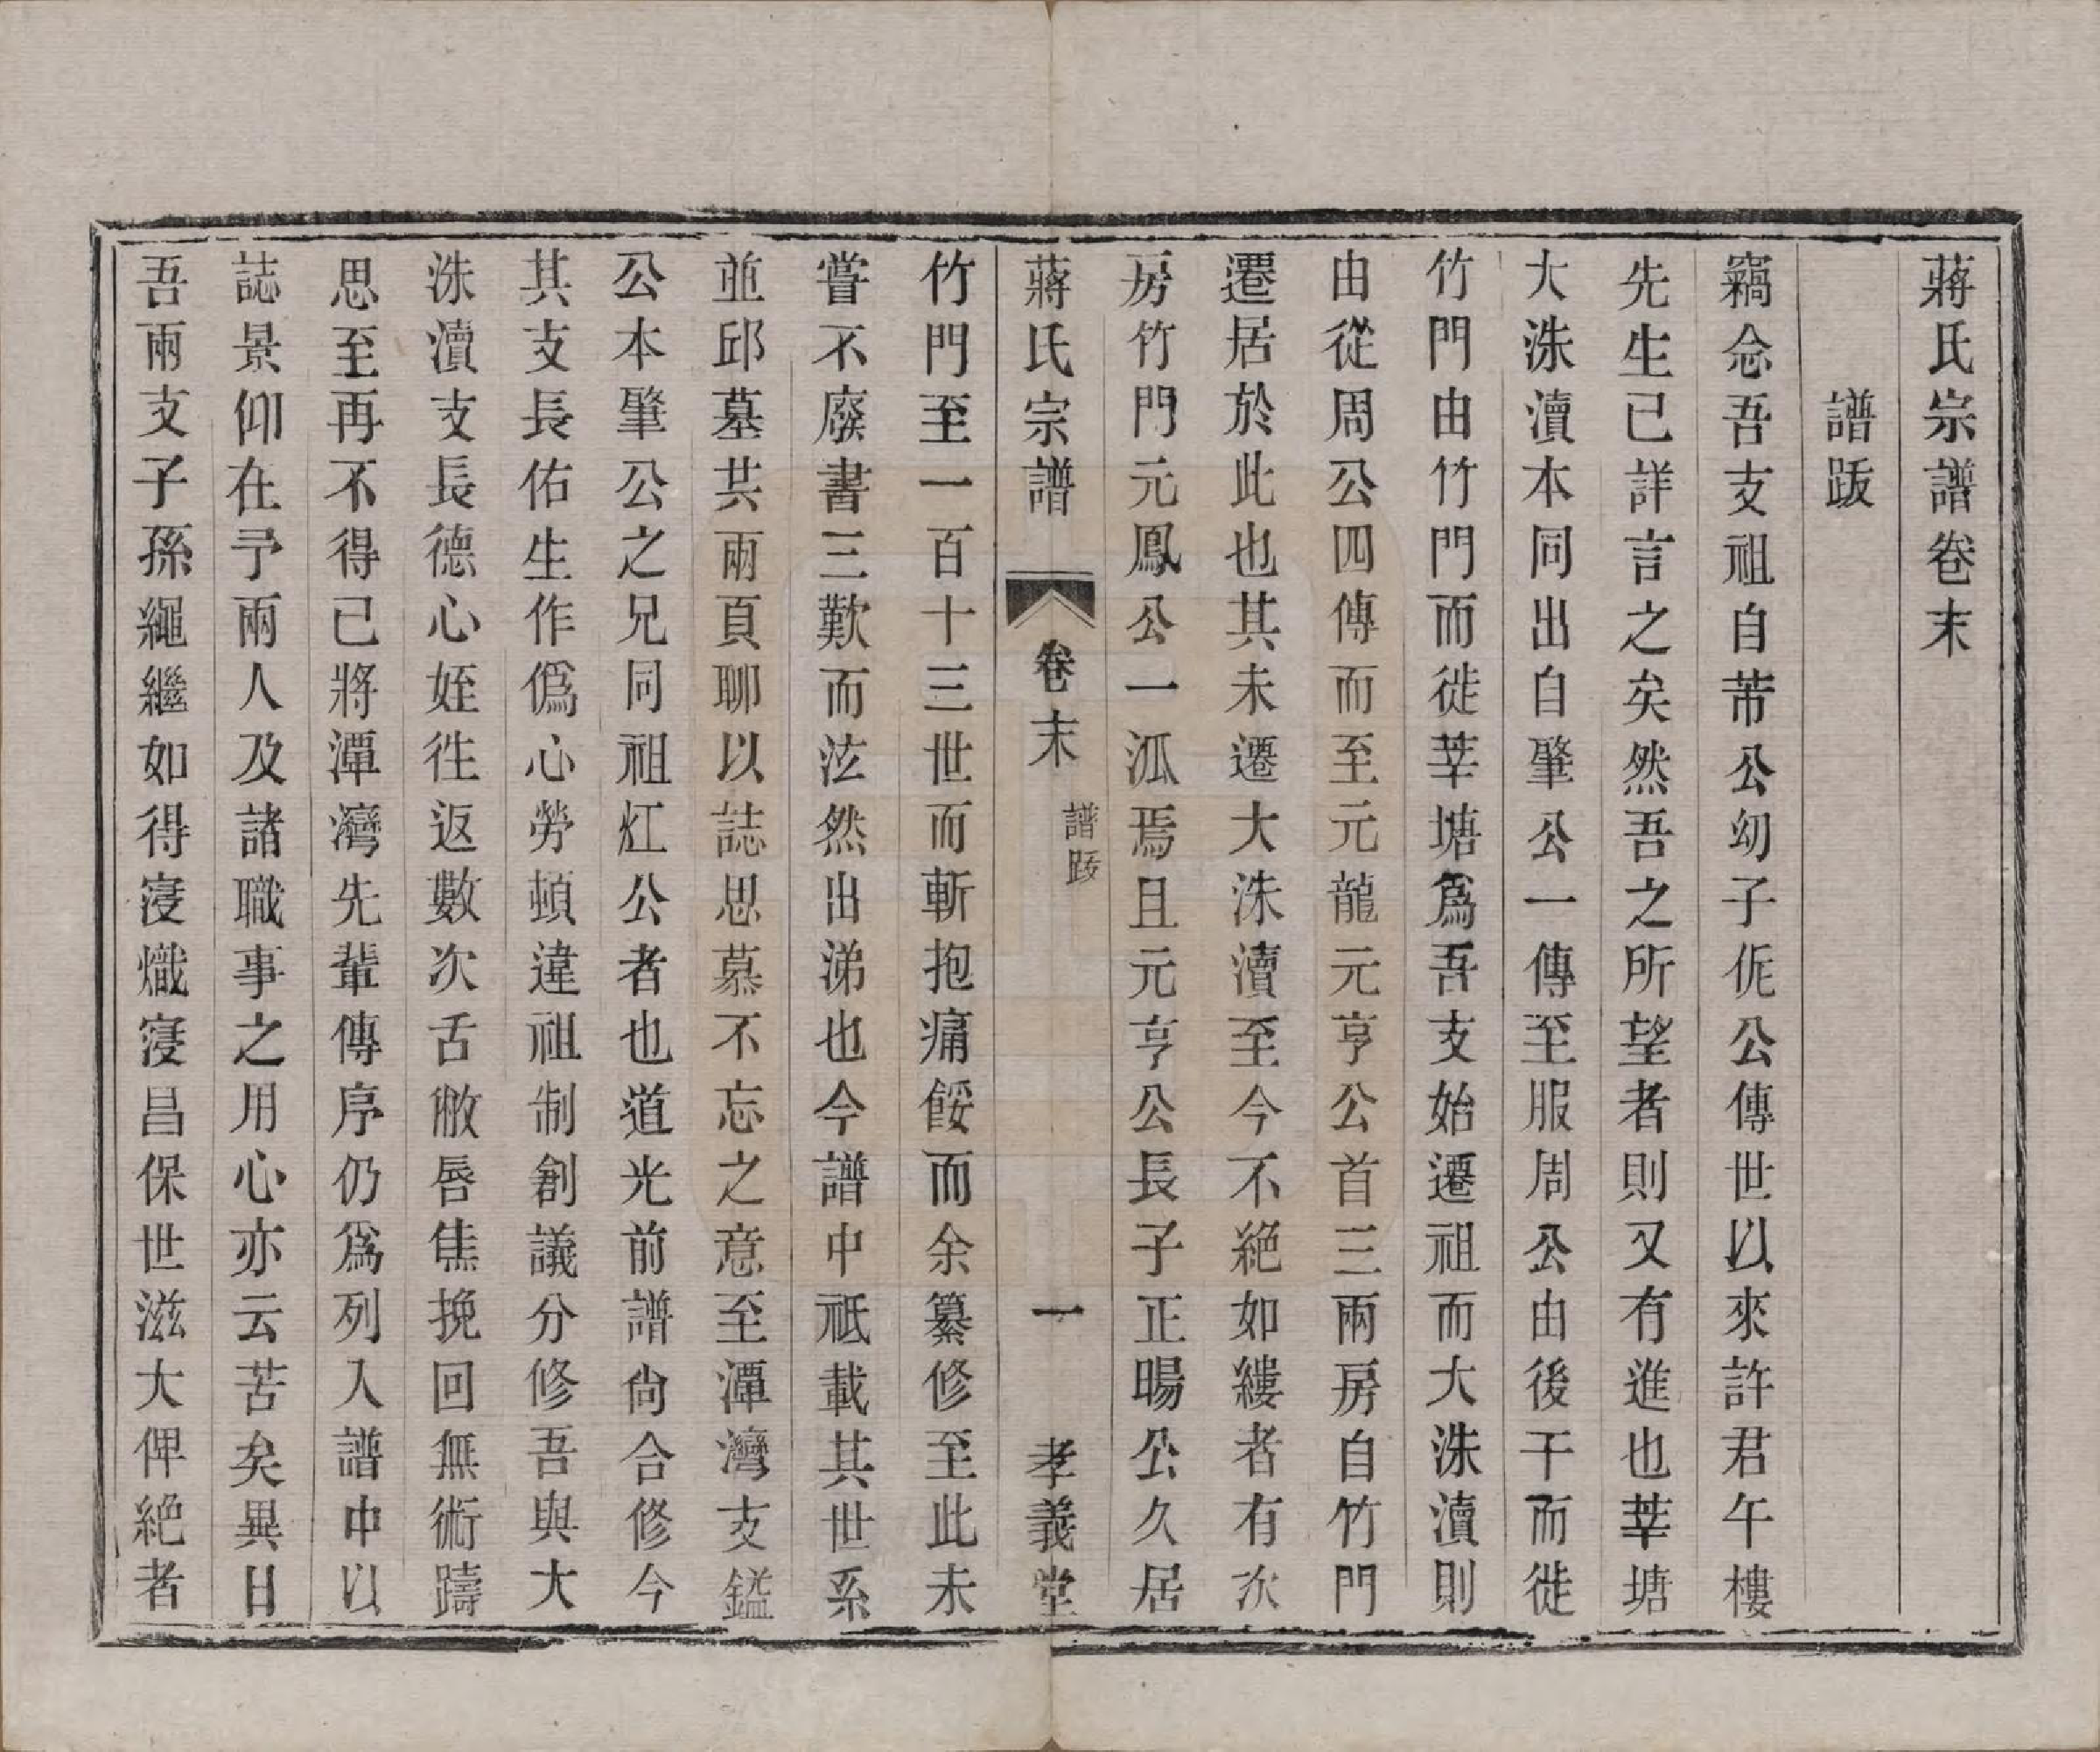 蔣氏宗譜卷末
譜跋
竊念吾支祖自芾公幼子伲公傳世以來許君午樓
先生已詳言之矣然吾之所望者則又有進也莘塘
大洙瀆本同出自肇公一傳至服周公由後干而徙
竹門由竹門而徙莘塘爲吾支始遷祖而大洙瀆則
由從周公四傳而至元龍元亨公首三兩房自竹門
遷居於此也其未遷大洙瀆至今不絕如縷者有次
房竹門元鳳公一派焉且元亨公長子正暘公久居
蔣氏宗譜 卷末 譜跋 一 孝義堂
竹門至一百十三世而斬抱痛餒而余纂修至此未
嘗不廢書三歎而泫然出涕也今譜中祗載其世系
並邱墓共兩頁聊以誌思慕不忘之意至潭灣支鎰
公本肇公之兄同祖灴公者也道光前譜尙合修今
其支長佑生作僞心勞頓違祖制創議分修吾與大
洙瀆支長德心姪徃返數次舌敝唇焦挽回無術躊
思至再不得已將潭灣先輩傳序仍爲列入譜中以
誌景仰在予兩人及諸職事之用心亦云苦矣異日
吾兩支子孫繩繼如得寖熾寖昌保世滋大俾絕者